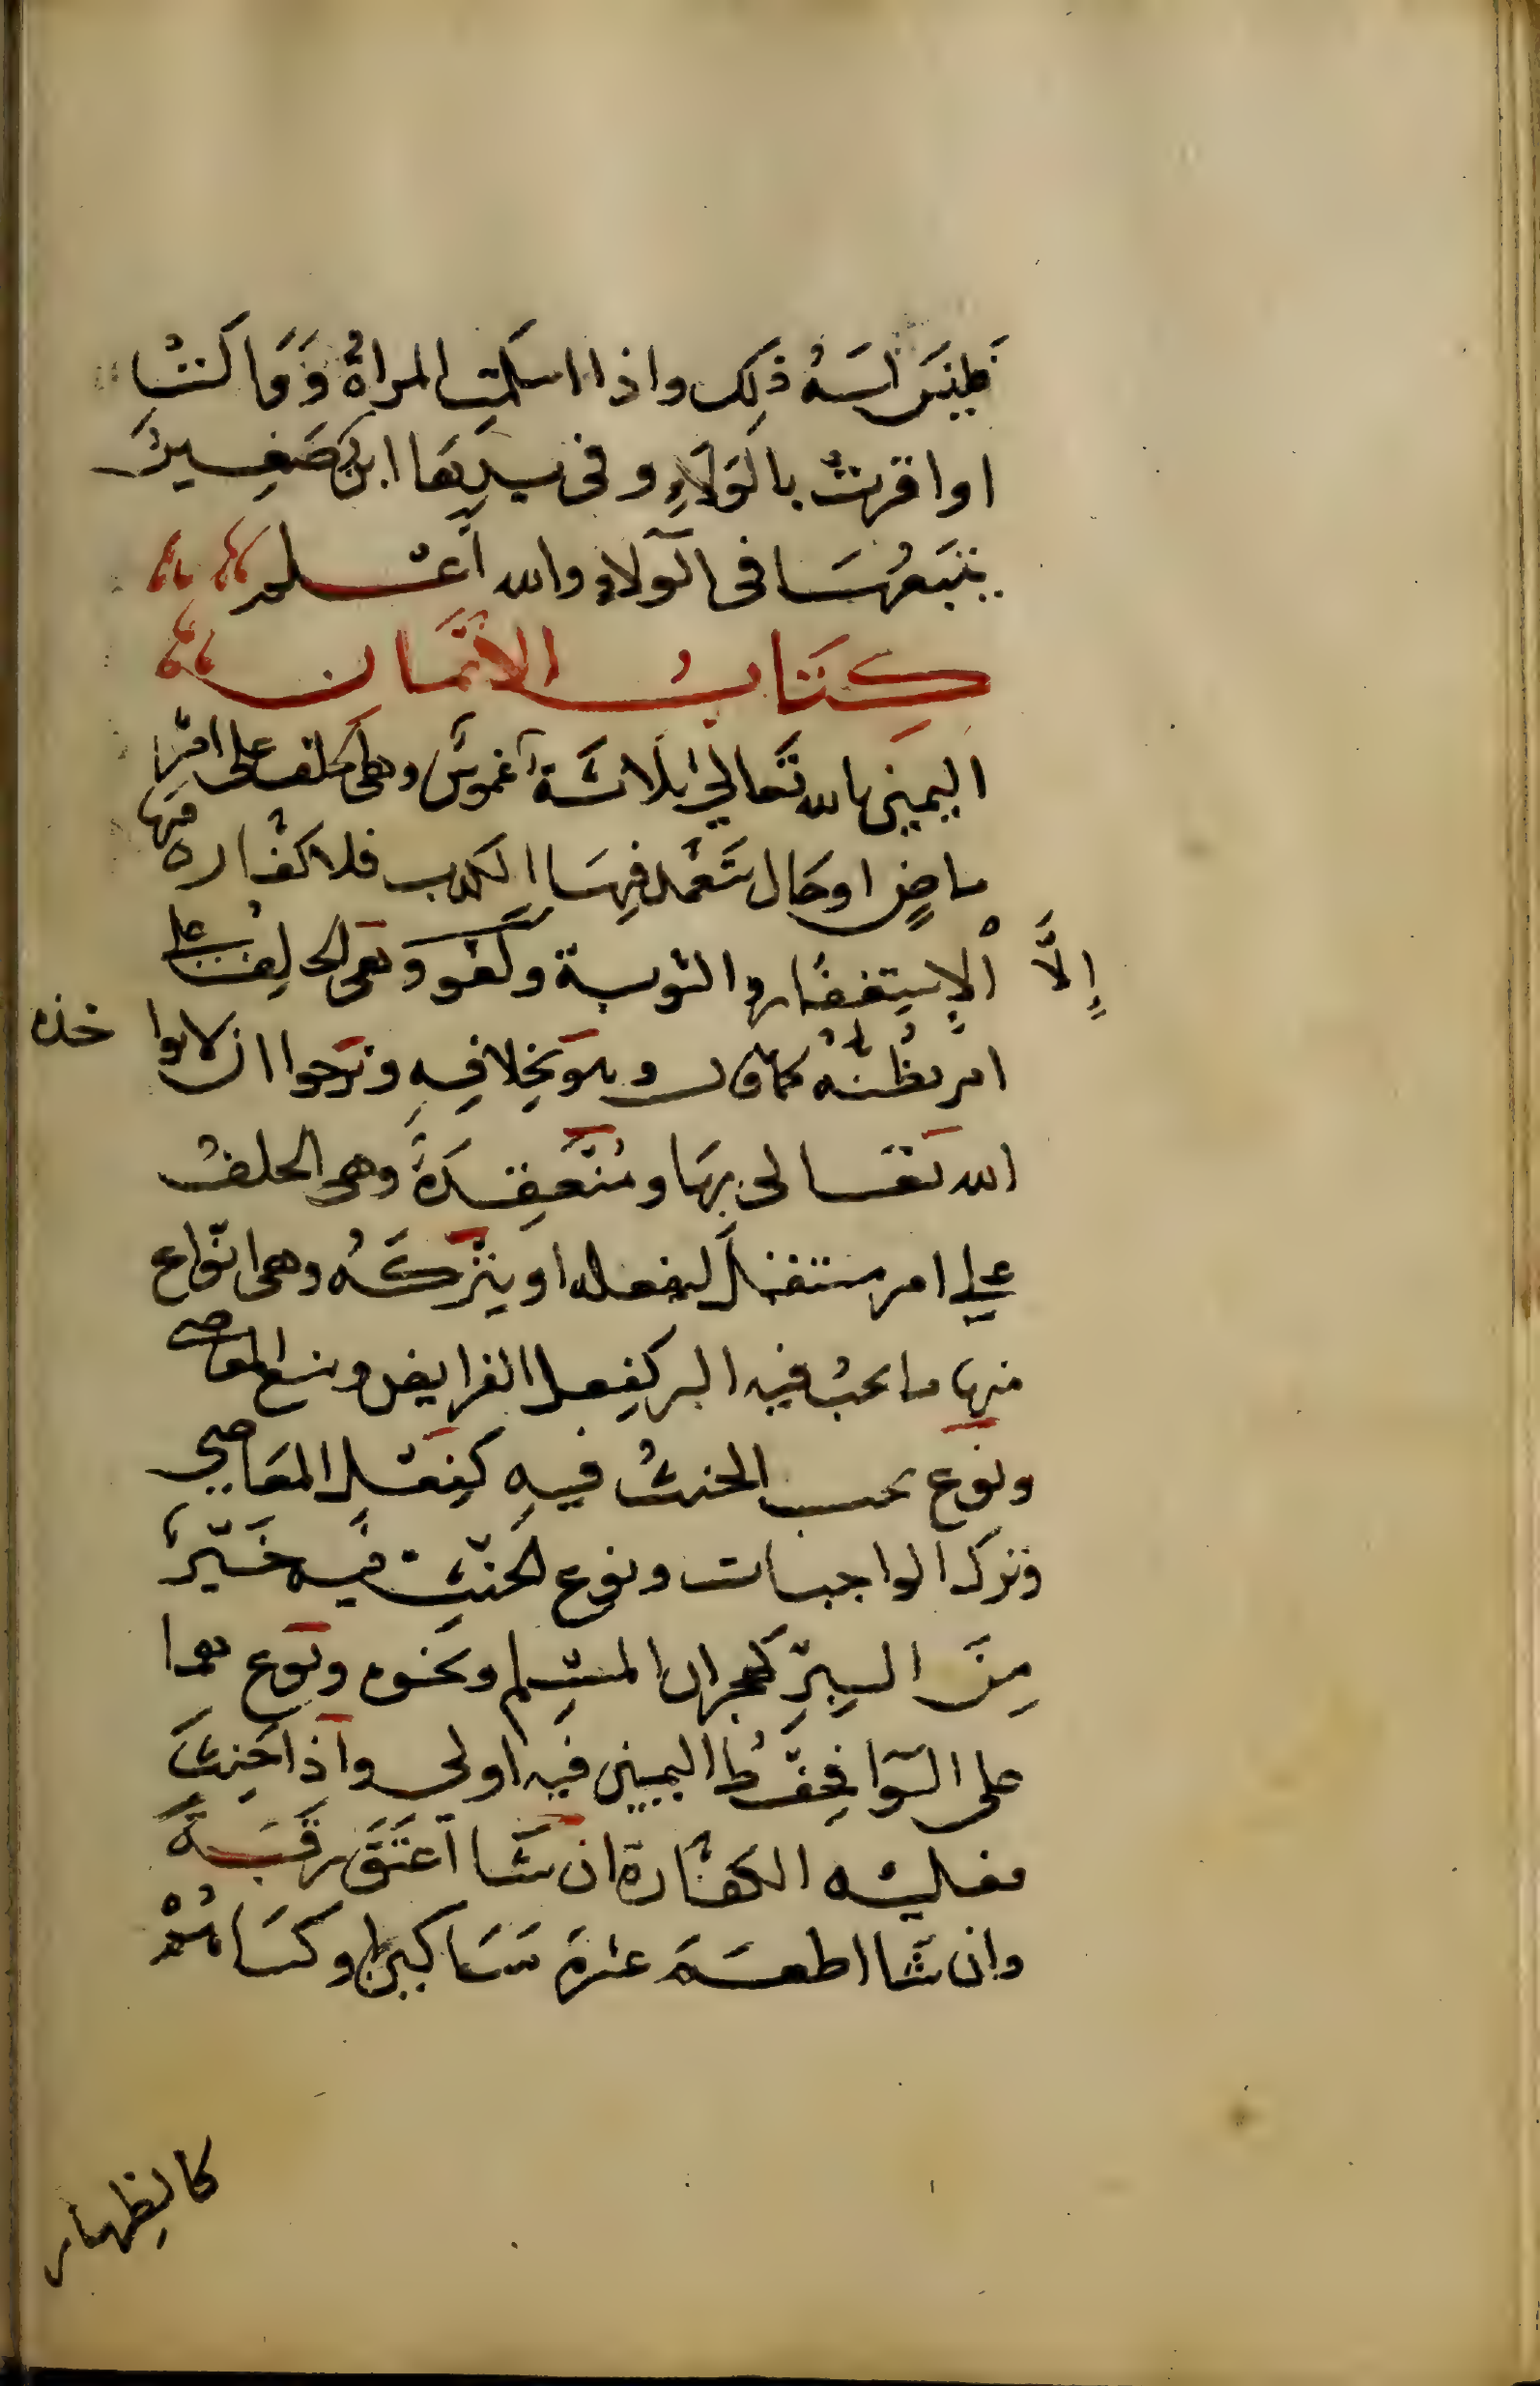 فليس له ذلك واذا اسلمت المراة ووالت
او اقرت بالولاء وفى يدها ابن صغير
يتبعها فى الولاء والله اعلم
كتاب الايمان
اليمين بالله تعالى ثلاثة غموس وهى الحلف على امر
ماض او حال يتعمد فيها الكذب فلا كفاره فيها
إلا الاستغفار والتوبة ولغو وهى الحلف على
امر يظنه كما قال وهو بخلافه ونرجوا ان لا يوا خذه
الله تعالى بها ومنعقدة وهى الحلف
على امر مستقبل ليفعله او يتركه وهى انواع
منها ما يجب فيه البر كفعل الفرايض ومنع المعاصى
ونوع يجب الحنث فيه كفعل المعاصي
وترك الواجبات ونوع الحنث فيه خير
من البر كهجران المسلم ونحوه ونوع هما
على السوا فحفظ اليمين فيه اولى واذا حنث
فعليه الكفارة ان شا اعتق رقبة
وان شا اطعم عشرة مساكين او كساهم
كالظهار